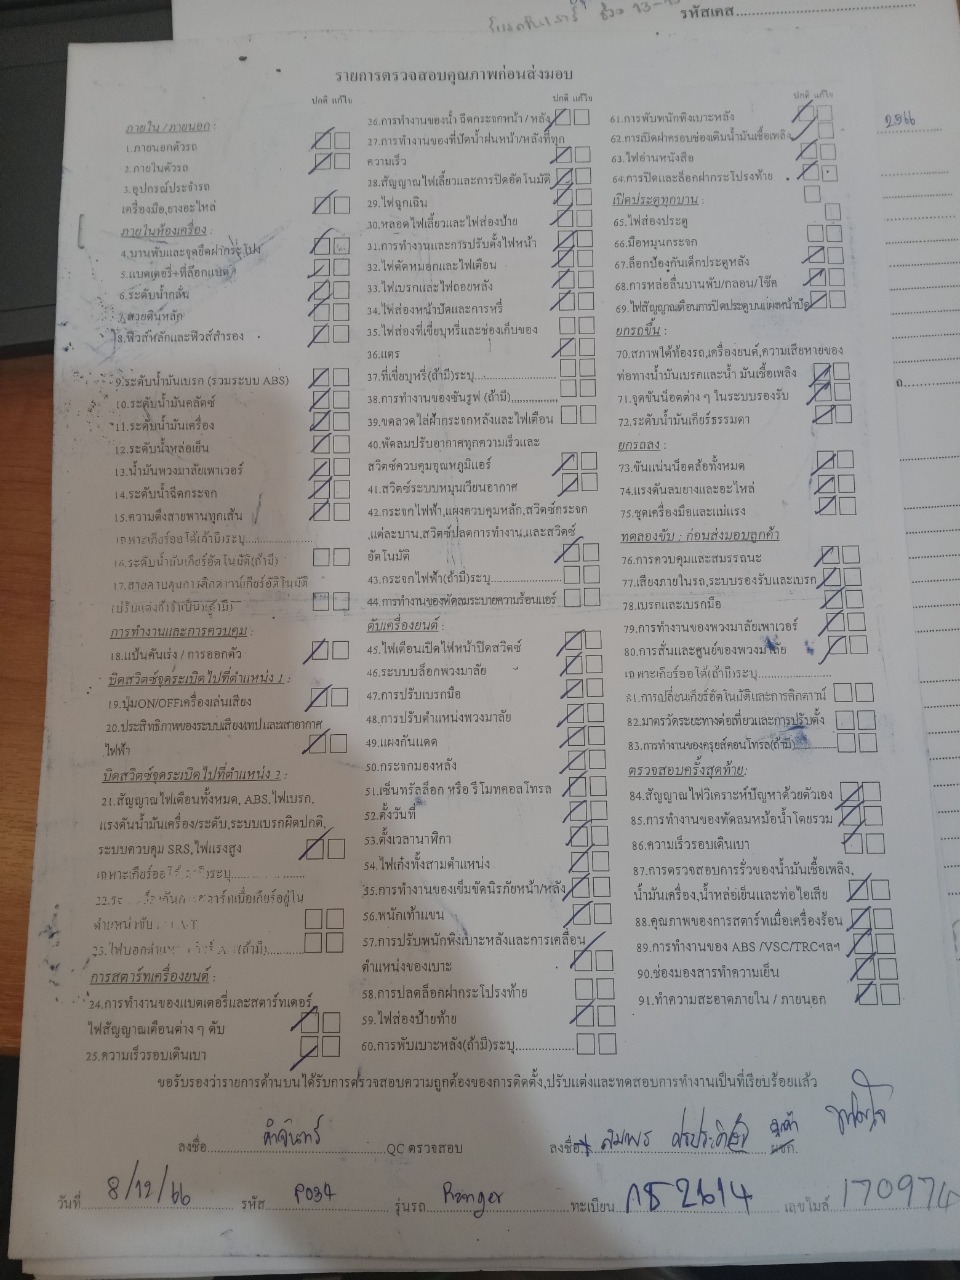 รหัสเคส
รายการตรวจสอบคุณภาพก่อนส่งมอบ
ปกติ แก้ไข
ภายใน / ภายนอก :
1.ภายนอกตัวรถ
2.ภายในตัวรถ
3.อุปกรณ์ประจำรถ
เครื่องมือ,ยางอะไหล่
ภายในห้องเครื่อง :
4.บานพับและจุดยึดฝากระโปรง
5.แบตเตอรี่+ที่ล็อกแบต
6.ระดับน้ำกลั่น
7.สายดินหลัก
8.ฟิวส์หลักและฟิวส์สำรอง
9.ระดับน้ำมันเบรก (รวมระบบ ABS)
10.ระดับน้ำมันคลัตช์
11.ระดับน้ำมันเครื่อง
12.ระดับน้ำหล่อเย็น
13.น้ำมันพวงมาลัยเพาเวอร์
14.ระดับน้ำฉีดกระจก
15.ความตึงสายพานทุกเส้น
เฉพาะเกียร์ออโต้(ถ้ามี)ระบุ
16.ระดับน้ำมันเกียร์อัตโนมัติ(ถ้ามี)
17.สายควบคุมการคิกดาวน์เกียร์อัตโนมัติ
(ปรับแต่งถ้าจำเป็น)(ถ้ามี)
การทำงานและการควบคุม :
18.แป้นคันเร่ง / การออกตัว
บิดสวิตซ์จุดระเบิดไปที่ตำแหน่ง 1 :
19.ปุ่มON/OFFเครื่องเล่นเสียง
20.ประสิทธิภาพของระบบเสียงเทปและเสาอากาศ
ไฟฟ้า
บิดสวิตซ์จุดระเบิดไปที่ตำแหน่ง 2 :
21.สัญญาณไฟเตือนทั้งหมด, ABS,ไฟเบรก,
แรงดันน้ำมันเครื่อง/ระดับ,ระบบเบรกผิดปกติ,
ระบบควบคุม SRS,ไฟแรงสูง
เฉพาะเกียร์ออโต้(ถ้ามี)ระบุ
ตำแหน่งขับ
23.ไฟบอกตำแหน่ง (ถ้ามี)
การสตาร์ทเครื่องยนต์ :
24.การทำงานของแบตเตอรี่และสตาร์ทเตอร์,
ไฟสัญญาณเตือนต่าง ๆ ดับ
25.ความเร็วรอบเดินเบา
ปกติ แก้ไข
26.การทำงานของน้ำ ฉีดกระจกหน้า / หลัง
27.การทำงานของที่ปัดน้ำฝนหน้า/หลังที่ทุก
ความเร็ว
28.สัญญาณไฟเลี้ยวและการปิดอัตโนมัติ
29.ไฟฉุกเฉิน
30.หลอดไฟเลี้ยวและไฟส่องป้าย
31.การทำงานและการปรับตั้งไฟหน้า
32.ไฟตัดหมอกและไฟเตือน
33.ไฟเบรกและไฟถอยหลัง
34.ไฟส่องหน้าปัดและการหรี่
35.ไฟส่องที่เขี่ยบุหรี่และช่องเก็บของ
36.แตร
37.ที่เขี่ยบุหรี่(ถ้ามี)ระบุ
38.การทำงานของซันรูฟ (ถ้ามี)
39.ขดลวดไล่ฝ้ากระจกหลังและไฟเตือน
40.พัดลมปรับอากาศทุกความเร็วและ
สวิตซ์ควบคุมอุณหภูมิแอร์
41.สวิตซ์ระบบหมุนเวียนอากาศ
42.กระจกไฟฟ้า,แผงควบคุมหลัก,สวิตซ์กระจก
,แต่ละบาน,สวิตซ์ปลดการทำงาน,และสวิตซ์
อัตโนมัติ
43.กระจกไฟฟ้า(ถ้ามี)ระบุ
44.การทำงานของพัดลมระบายความร้อนแอร์
ดับเครื่องยนต์ :
45.ไฟเตือนเปิดไฟหน้าปิดสวิตซ์
46.ระบบบล็อกพวงมาลัย
47.การปรับเบรกมือ
48.การปรับตำแหน่งพวงมาลัย
49.แผงกันแดด
50.กระจกมองหลัง
51.เซ็นทรัลล็อก หรือ รีโมทคอลโทรล
52.ตั้งวันที่
53.ตั้งเวลานาฬิกา
54.ไฟเก๋งทั้งสามตำแหน่ง
55.การทำงานของเข็มขัดนิรภัยหน้า/หลัง
56.พนักเท้าแขน
57.การปรับพนักพิงเบาะหลังและการเคลื่อน
ตำแหน่งของเบาะ
58.การปลดล็อกฝากระโปรงท้าย
59.ไฟส่องป้ายท้าย
60.การพับเบาะหลัง(ถ้ามี)ระบุ
ปกติ แก้ไข
61.การพับพนักพิงเบาะหลัง
62.การเปิดฝาครอบช่องเติมน้ำมันเชื้อเพลิง
63.ไฟอ่านหนังสือ
64.การปิดและล็อกฝากระโปรงท้าย
เปิดประตูทุกบาน :
65.ไฟส่องประตู
66.มือหมุนกระจก
67.ล็อกป้องกันเด็กประตูหลัง
68.การหล่อลื่นบานพับ/กลอน / โช๊ค
69.ไฟสัญญาณเตือนการปิดประตูบนแผงหน้าปัด
ยกรถขึ้น :
70.สภาพใต้ท้องรถ,เครื่องยนต์,ความเสียหายของ
ท่อทางน้ำมันเบรกและน้ำ มันเชื้อเพลิง
71.จุดขันน็อตต่าง ๆ ในระบบรองรับ
72.ระดับน้ำมันเกียร์ธรรมดา
ยกรถลง :
73.ขันแน่นน็อตล้อทั้งหมด
74.แรงดันลมยางและอะไหล่
75.ชุดเครื่องมือและแม่แรง
ทดลองขับ : ก่อนส่งมอบลูกค้า
76.การควบคุมและสมรรถนะ
77.เสียงภายในรถ,ระบบรองรับและเบรก
78.เบรกและเบรกมือ
79.การทำงานของพวงมาลัยเพาเวอร์
80.การสั่นและศูนย์ของพวงมาลัย
เฉพาะเกียร์ออโต้(ถ้ามี)ระบุ
81.การเปลี่ยนเกียร์อัตโนมัติและการคิกดาวน์
82.มาตรวัดระยะทางต่อเที่ยวและการปรับตั้ง
83.การทำงานของครุยส์คอนโทรล(ถ้ามี)
ตรวจสอบครั้งสุดท้าย:
84.สัญญาณไฟวิเคราะห์ปัญหาด้วยตัวเอง
85.การทำงานของพัดลมหม้อน้ำโดยรวม
86.ความเร็วรอบเดินเบา
87.การตรวจสอบการรั่วของน้ำมันเชื้อเพลิง,
น้ำมันเครื่อง,น้ำหล่อเย็นและท่อไอเสีย
88.คุณภาพของการสตาร์ทเมื่อเครื่องร้อน
89.การทำงานของ ABS /VSC/TRCฯลฯ
90.ช่องมองสารทำความเย็น
91.ทำความสะอาดภายใน / ภายนอก
ขอรับรองว่ารายการด้านบนได้รับการตรวจสอบความถูกต้องของการติดตั้ง,ปรับแต่งและทดสอบการทำงานเป็นที่เรียบร้อยแล้ว
ลงชื่อ คำจันทร์ QC ตรวจสอบ ลงชื่อ สมพร ลูกค้า ผชก.
วันที่ 8/12/66 รหัส P037 รุ่นรถ Ranger ทะเบียน กธ 2614 เลขไมล์ 170974